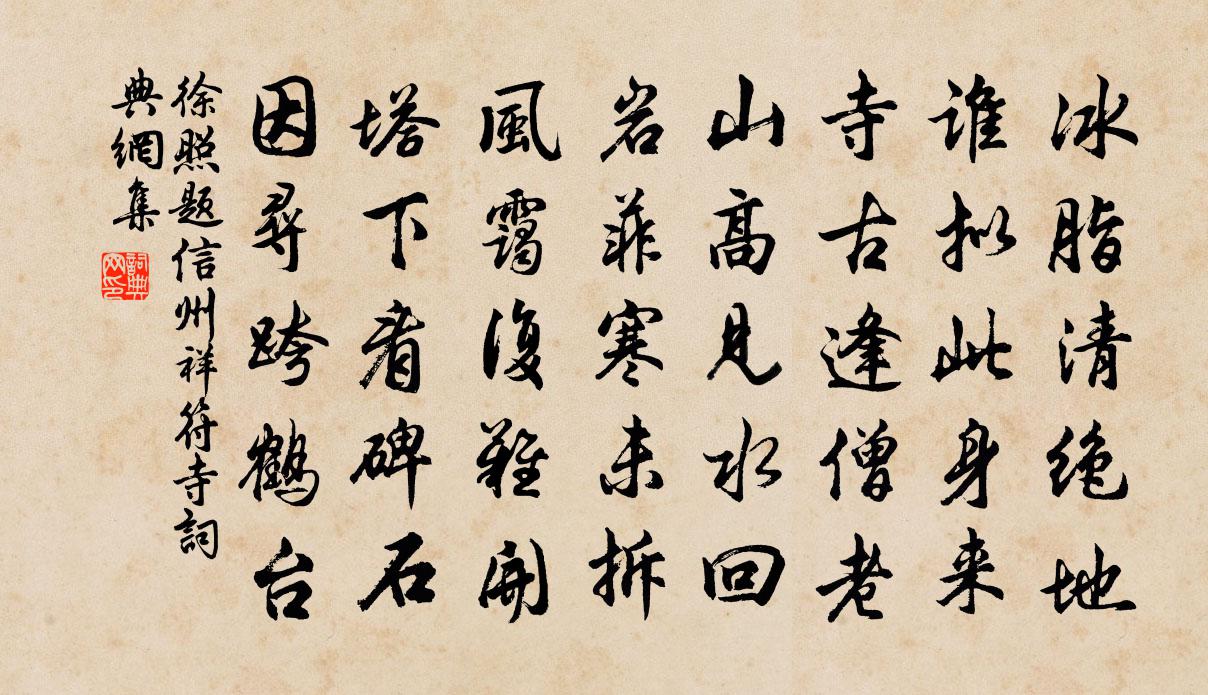 冰脂清绝地
谁拟此身来
寺古逢僧老
山高见水回
岩菲寒未拆
風靄復難開
塔下看碑石
因尋跨鶴台
徐照题信州祥符寺詞
典網集
詞典
网印